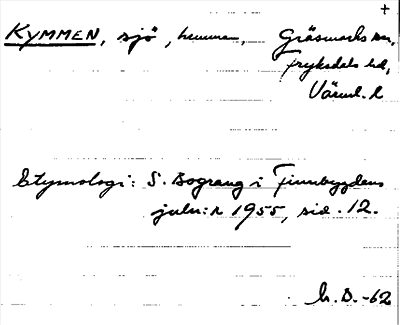 +
KYMMEN, sjö, hemman, Gräsmarks sn,
Fryksdals hd,
Värml. l
Etymologi: S. Bograng i Finnbygdens
julnr 1955, sid. 12.
h. D. -62